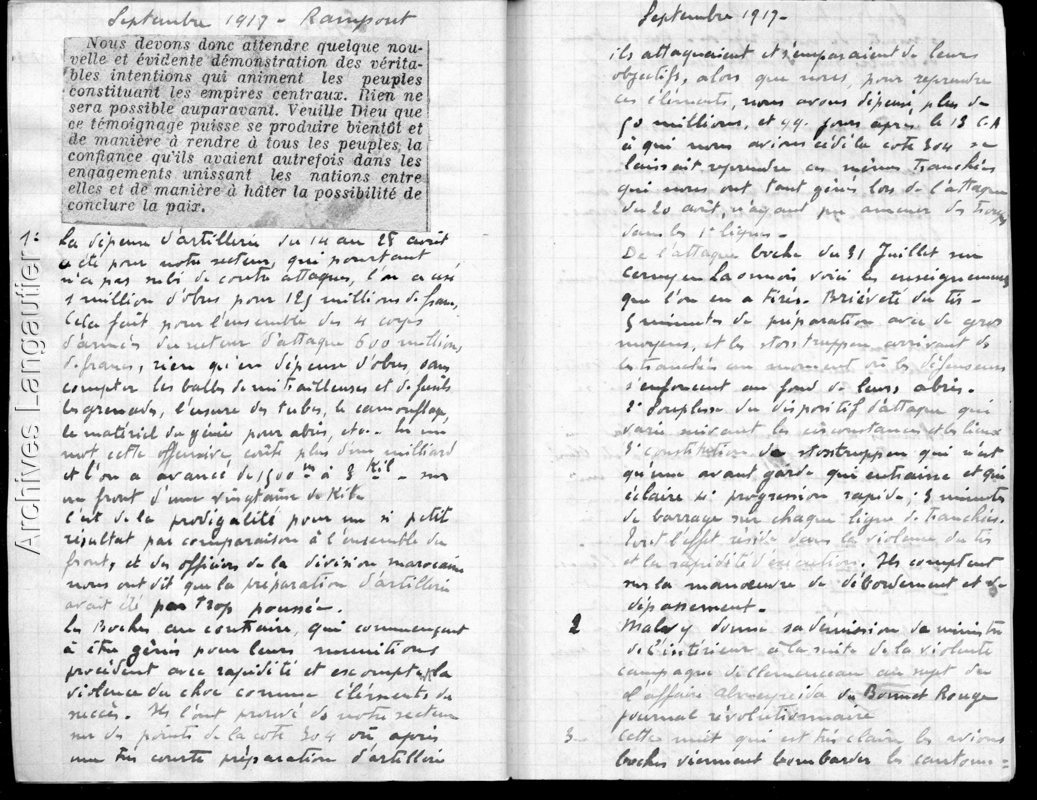 Septembre 1917 - Rampont
Nous devons donc attendre quelque nou-
velle et évidente démonstration des vérita-
bles intentions qui animent les peuples
constituant les empires centraux. Rien ne
sera possible auparavant. Veuille Dieu que
ce témoignage puisse se produire bientôt et
de manière à rendre à tous les peuples, la
confiance qu'ils avaient autrefois dans les
engagements unissant les nations entre
elles et de manière à hâter la possibilité de
conclure la paix.
La dépense d'artillerie du 14 au 28 août
a été pour notre secteur, qui pourtant
n'a pas subi de contre attaques, l'on a usé
1 million d'obus pour 125 millions de francs,
Cela fait pour l'ensemble des 4 corps
d'armée du secteur d'attaque 600 millions
de francs, rien qu'en dépense d'obus, sans
compter les balles de mitrailleuses et de fusils
les grenades, l'usure des tubes, le camouflage,
le matériel du génie pour abris, etc.. En un
mot cette offensive coûte plus d'un milliard
et l'on a avancé de 1500 m à 3 Kil - sur
un front d'une vingtaine de Kil.
C'est de la prodigalité pour un si petit
résultat par comparaison à l'ensemble du
front, et des officiers de la division marocaine
nous ont dit que la préparation d'artillerie
avait été par trop poussée.
Les Boches au contraire, qui commencent
à être gênés pour leurs munitions
procèdent avec rapidité et escomptent la
violence du choc comme éléments de
succès. Ils l'ont prouvé de notre secteur
sur des points de la cote 304 où après
une très courte préparation d'artillerie
Archives Langautier
Septembre 1917-
ils attaquaient et s'emparaient de leurs
objectifs, alors que nous, pour reprendre
ces éléments, nous avons dépensé plus de
50 millions, et 44 jours après le 13 C.A
à qui nous avions cédé la cote 304 se
laissait reprendre ces mêmes tranchées
qui nous ont tant gênés lors de l'attaque
du 20 août, n'ayant pu amener des troupes
dans les 1e lignes -
De l'attaque boche du 31 Juillet sur
Cerny en Laonnois voici les enseignements
que l'on en a tirés. Brièveté du tir -
5 minutes de préparation avec de gros
moyens, et les stosstruppen arrivant de
les tranchées au moment où les défenseurs
s'enfoncent au fond de leurs abris.
2° Souplesse du dispositif d'attaque qui
varie suivant les circonstances et les lieux
3° constitution de stosstruppen qui n'est
qu'une avant garde qui entraine et qui
éclaire 4° progression rapide ; 3 minutes
de barrage sur chaque ligne de tranchées.
Tout l'effet réside dans la violence du tir
et la rapidité d'exécution. Ils comptent
sur la manœuvre de débordement et de
dépassement -
2 Malvy donne sa démission de ministre
de l'intérieur à la suite de la violente
campagne de Clemenceau au sujet de
l'affaire Almereyda du Bonnet Rouge
journal révolutionnaire
3 - Cette nuit qui est très claire les avions
boches viennent bombarder les cantonne=